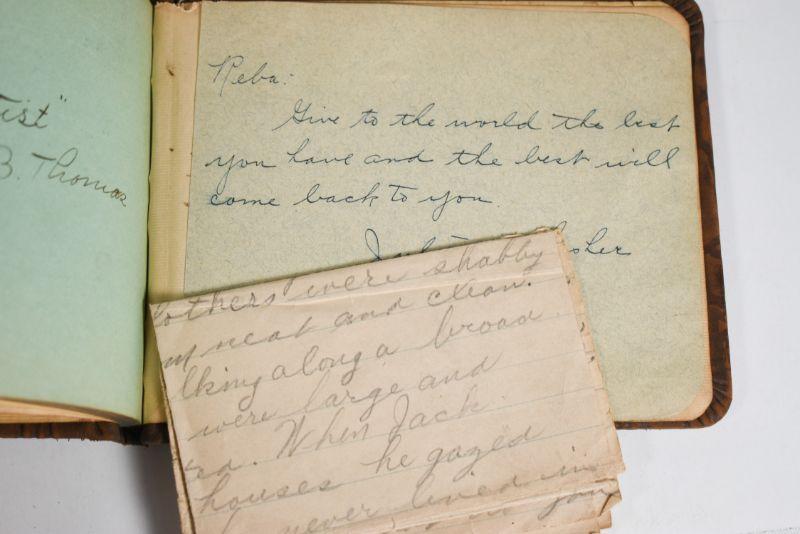 tist"
B. Thomas
Reba:-
Give to the world the best
you have and the best will
come back to you.
clothes were shabby
neat and clean.
lking along a broad
were large and
ed. When Jack
houses he gazed
never lived in
you